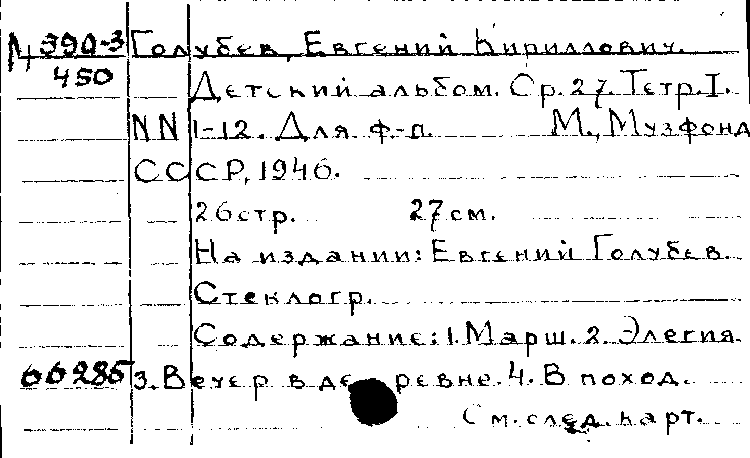 М 390-3 Голубев, Евгений Кириллович.
450 Детский альбом. Ор. 27. Тетр. I.
NN 1-12. Для ф-п. М., Музфонд
СССР, 1946.
26 стр. 27 см.
На издании: Евгений Голубев.
Стеклогр.
Содержание: 1. Марш. 2. Элегия.
66285 3. Вечер в деревне. 4. В поход.
См. след. карт.